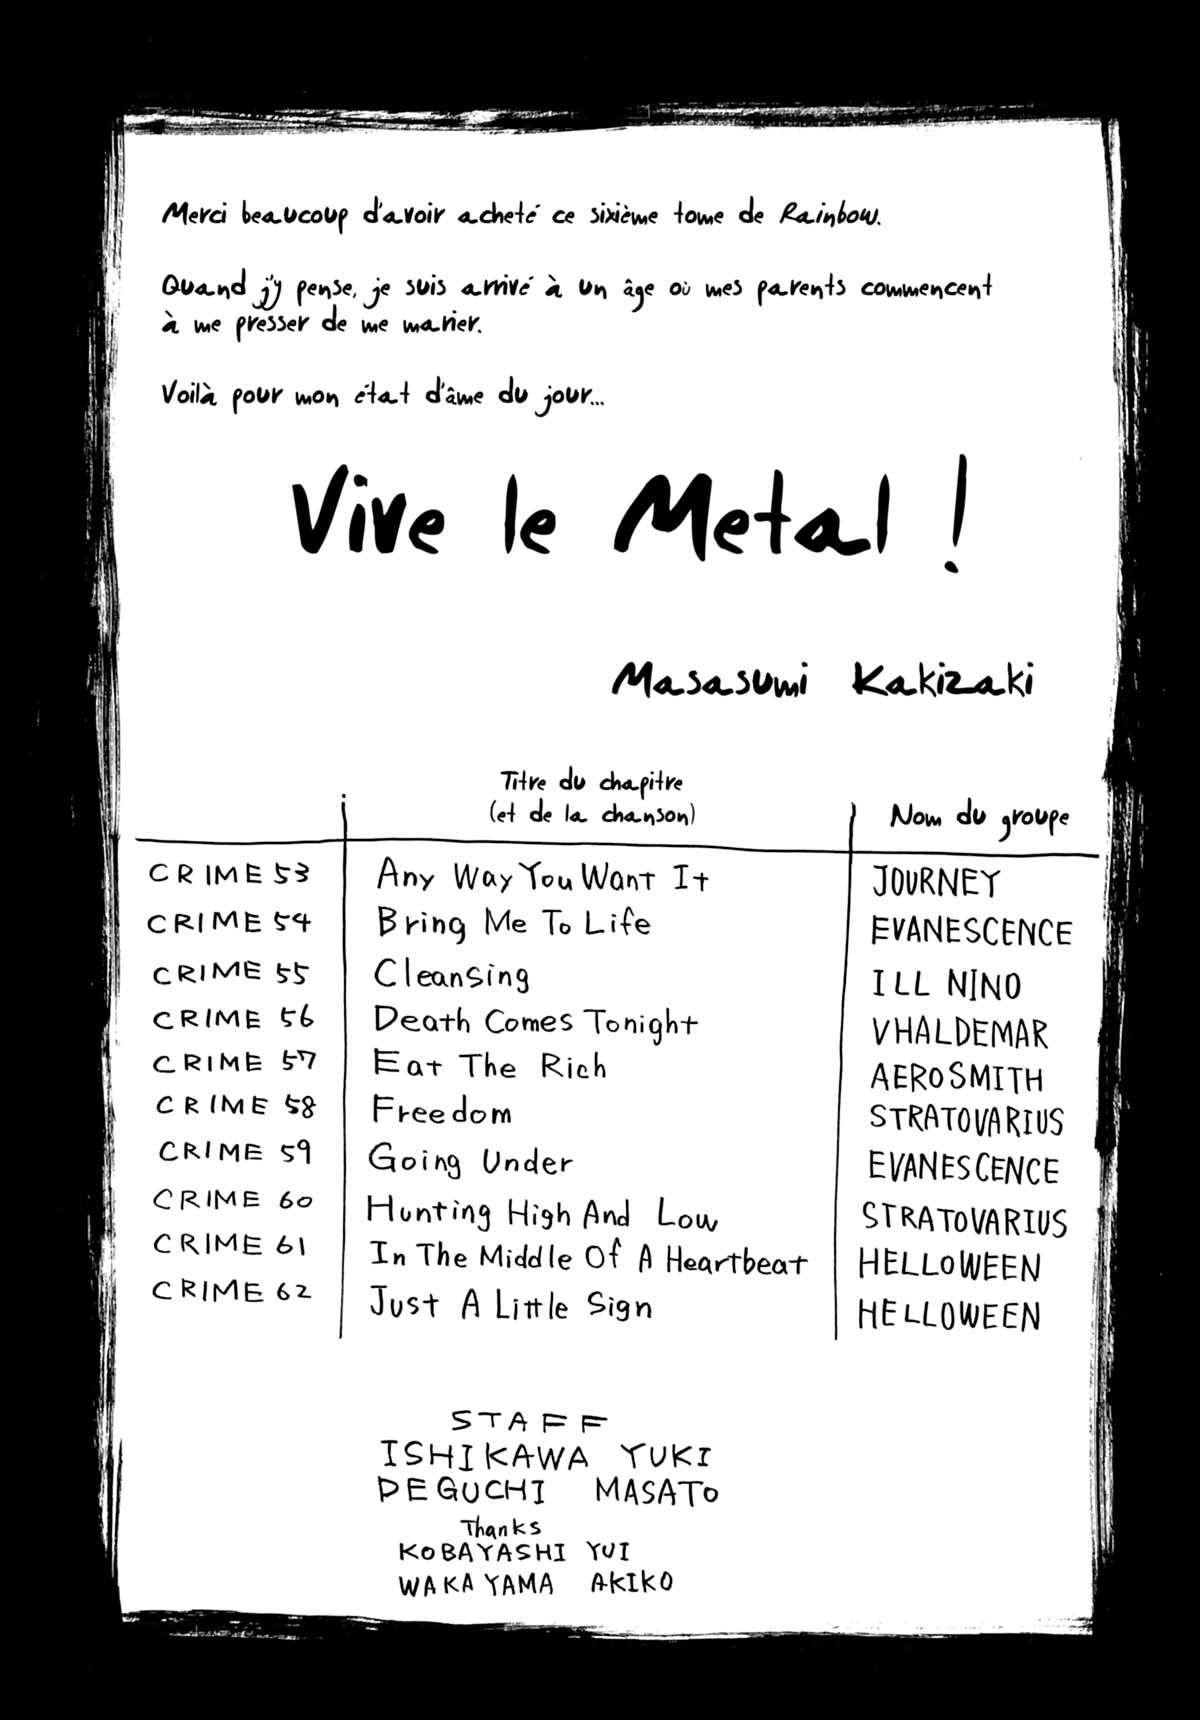 Merci beaucoup d'avoir acheté ce sixième tome de Rainbow.
Quand j'y pense, je suis arrivé à un âge où mes parents commencent
à me presser de me marier.
Voilà pour mon état d'âme du jour...
Vive le Metal !
Masasumi Kakizaki
Titre du chapitre
(et de la chanson)
Nom du groupe
CRIME 53 Any Way You Want It JOURNEY
CRIME 54 Bring Me To Life EVANESCENCE
CRIME 55 Cleansing ILL NINO
CRIME 56 Death Comes Tonight VHALDEMAR
CRIME 57 Eat The Rich AEROSMITH
CRIME 58 Freedom STRATOVARIUS
CRIME 59 Going Under EVANESCENCE
CRIME 60 Hunting High And Low STRATOVARIUS
CRIME 61 In The Middle Of A Heartbeat HELLOWEEN
CRIME 62 Just A Little Sign HELLOWEEN
STAFF
ISHIKAWA YUKI
DEGUCHI MASATO
Thanks
KOBAYASHI YUI
WAKAYAMA AKIKO